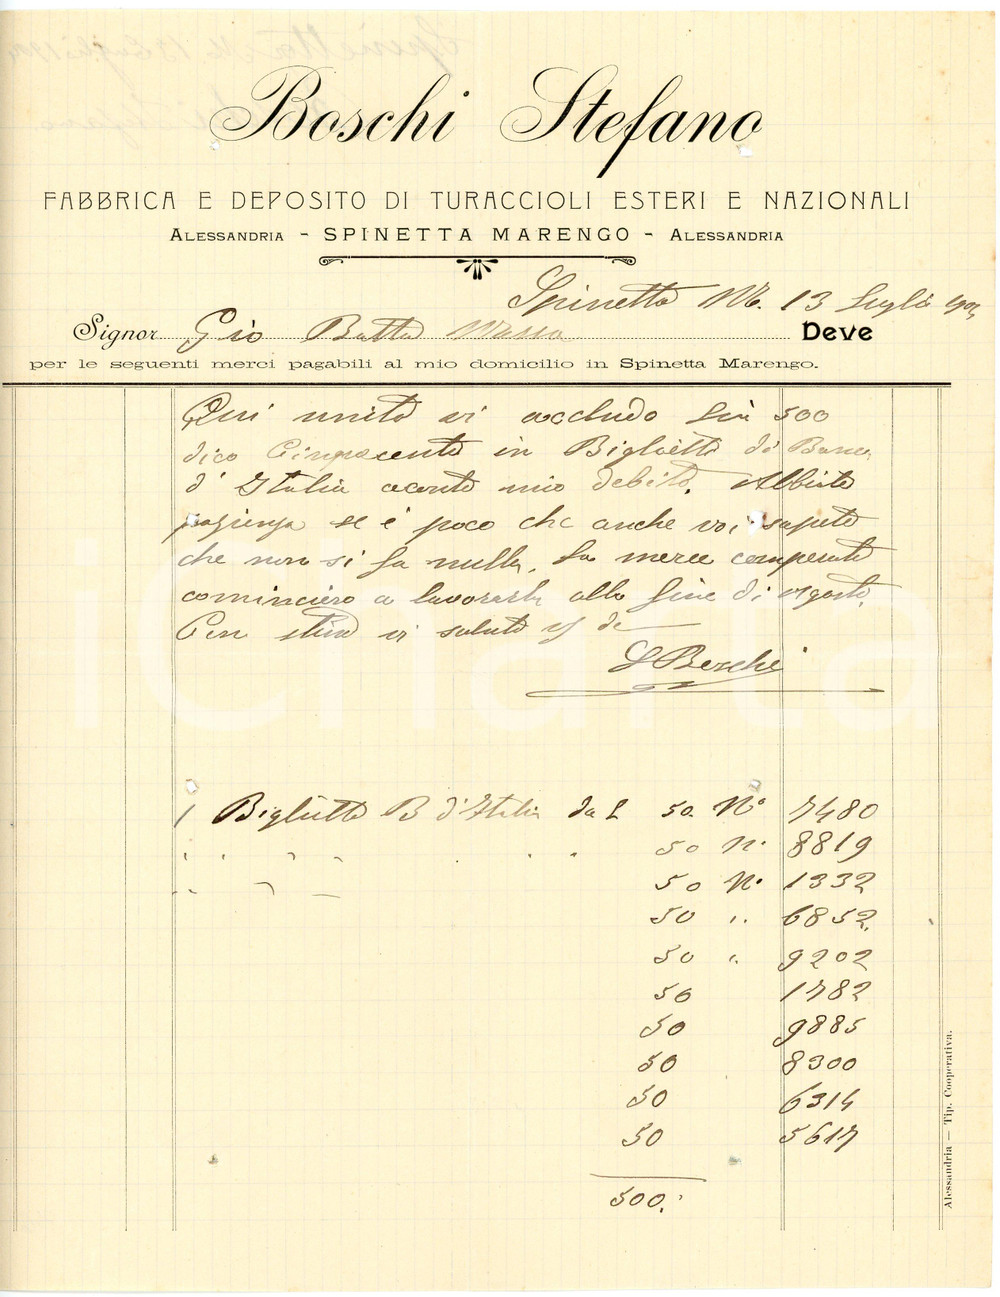 Boschi Stefano
FABBRICA E DEPOSITO DI TURACCIOLI ESTERI E NAZIONALI
ALESSANDRIA - SPINETTA MARENGO - ALESSANDRIA
Spinetta M. 13 Luglio
Signor Gio Batta Massa Deve
per le seguenti merci pagabili al mio domicilio in Spinetta Marengo.
Qui unito vi accludo Lire 500
dico Cinquecento in Biglietti di Banca
d'Italia aconto mio debito. Abbiate
pazienza se è poco che anche voi sapete
che non si fa nulla. La merce comperata
comincierò a lavorarla alla fine di Agosto.
Con stima vi saluto
S Boschi
1 Biglietto B d'Italia da L 50. N° 7480
50 N. 8819
50 N. 1332
50 " 6852.
50 " 9202
50 1782
50 9885
50 8300
50 6314
50 5617
500.
Alessandria — Tip. Cooperativa.
iCharta